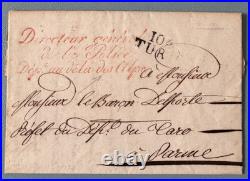 Directeur général
de la Police
Dép.ts au delà des Alpes
106
TUR
à Monsieur
Monsieur le Baron Delporte
Préfet du Dép.t du Taro
à Parme